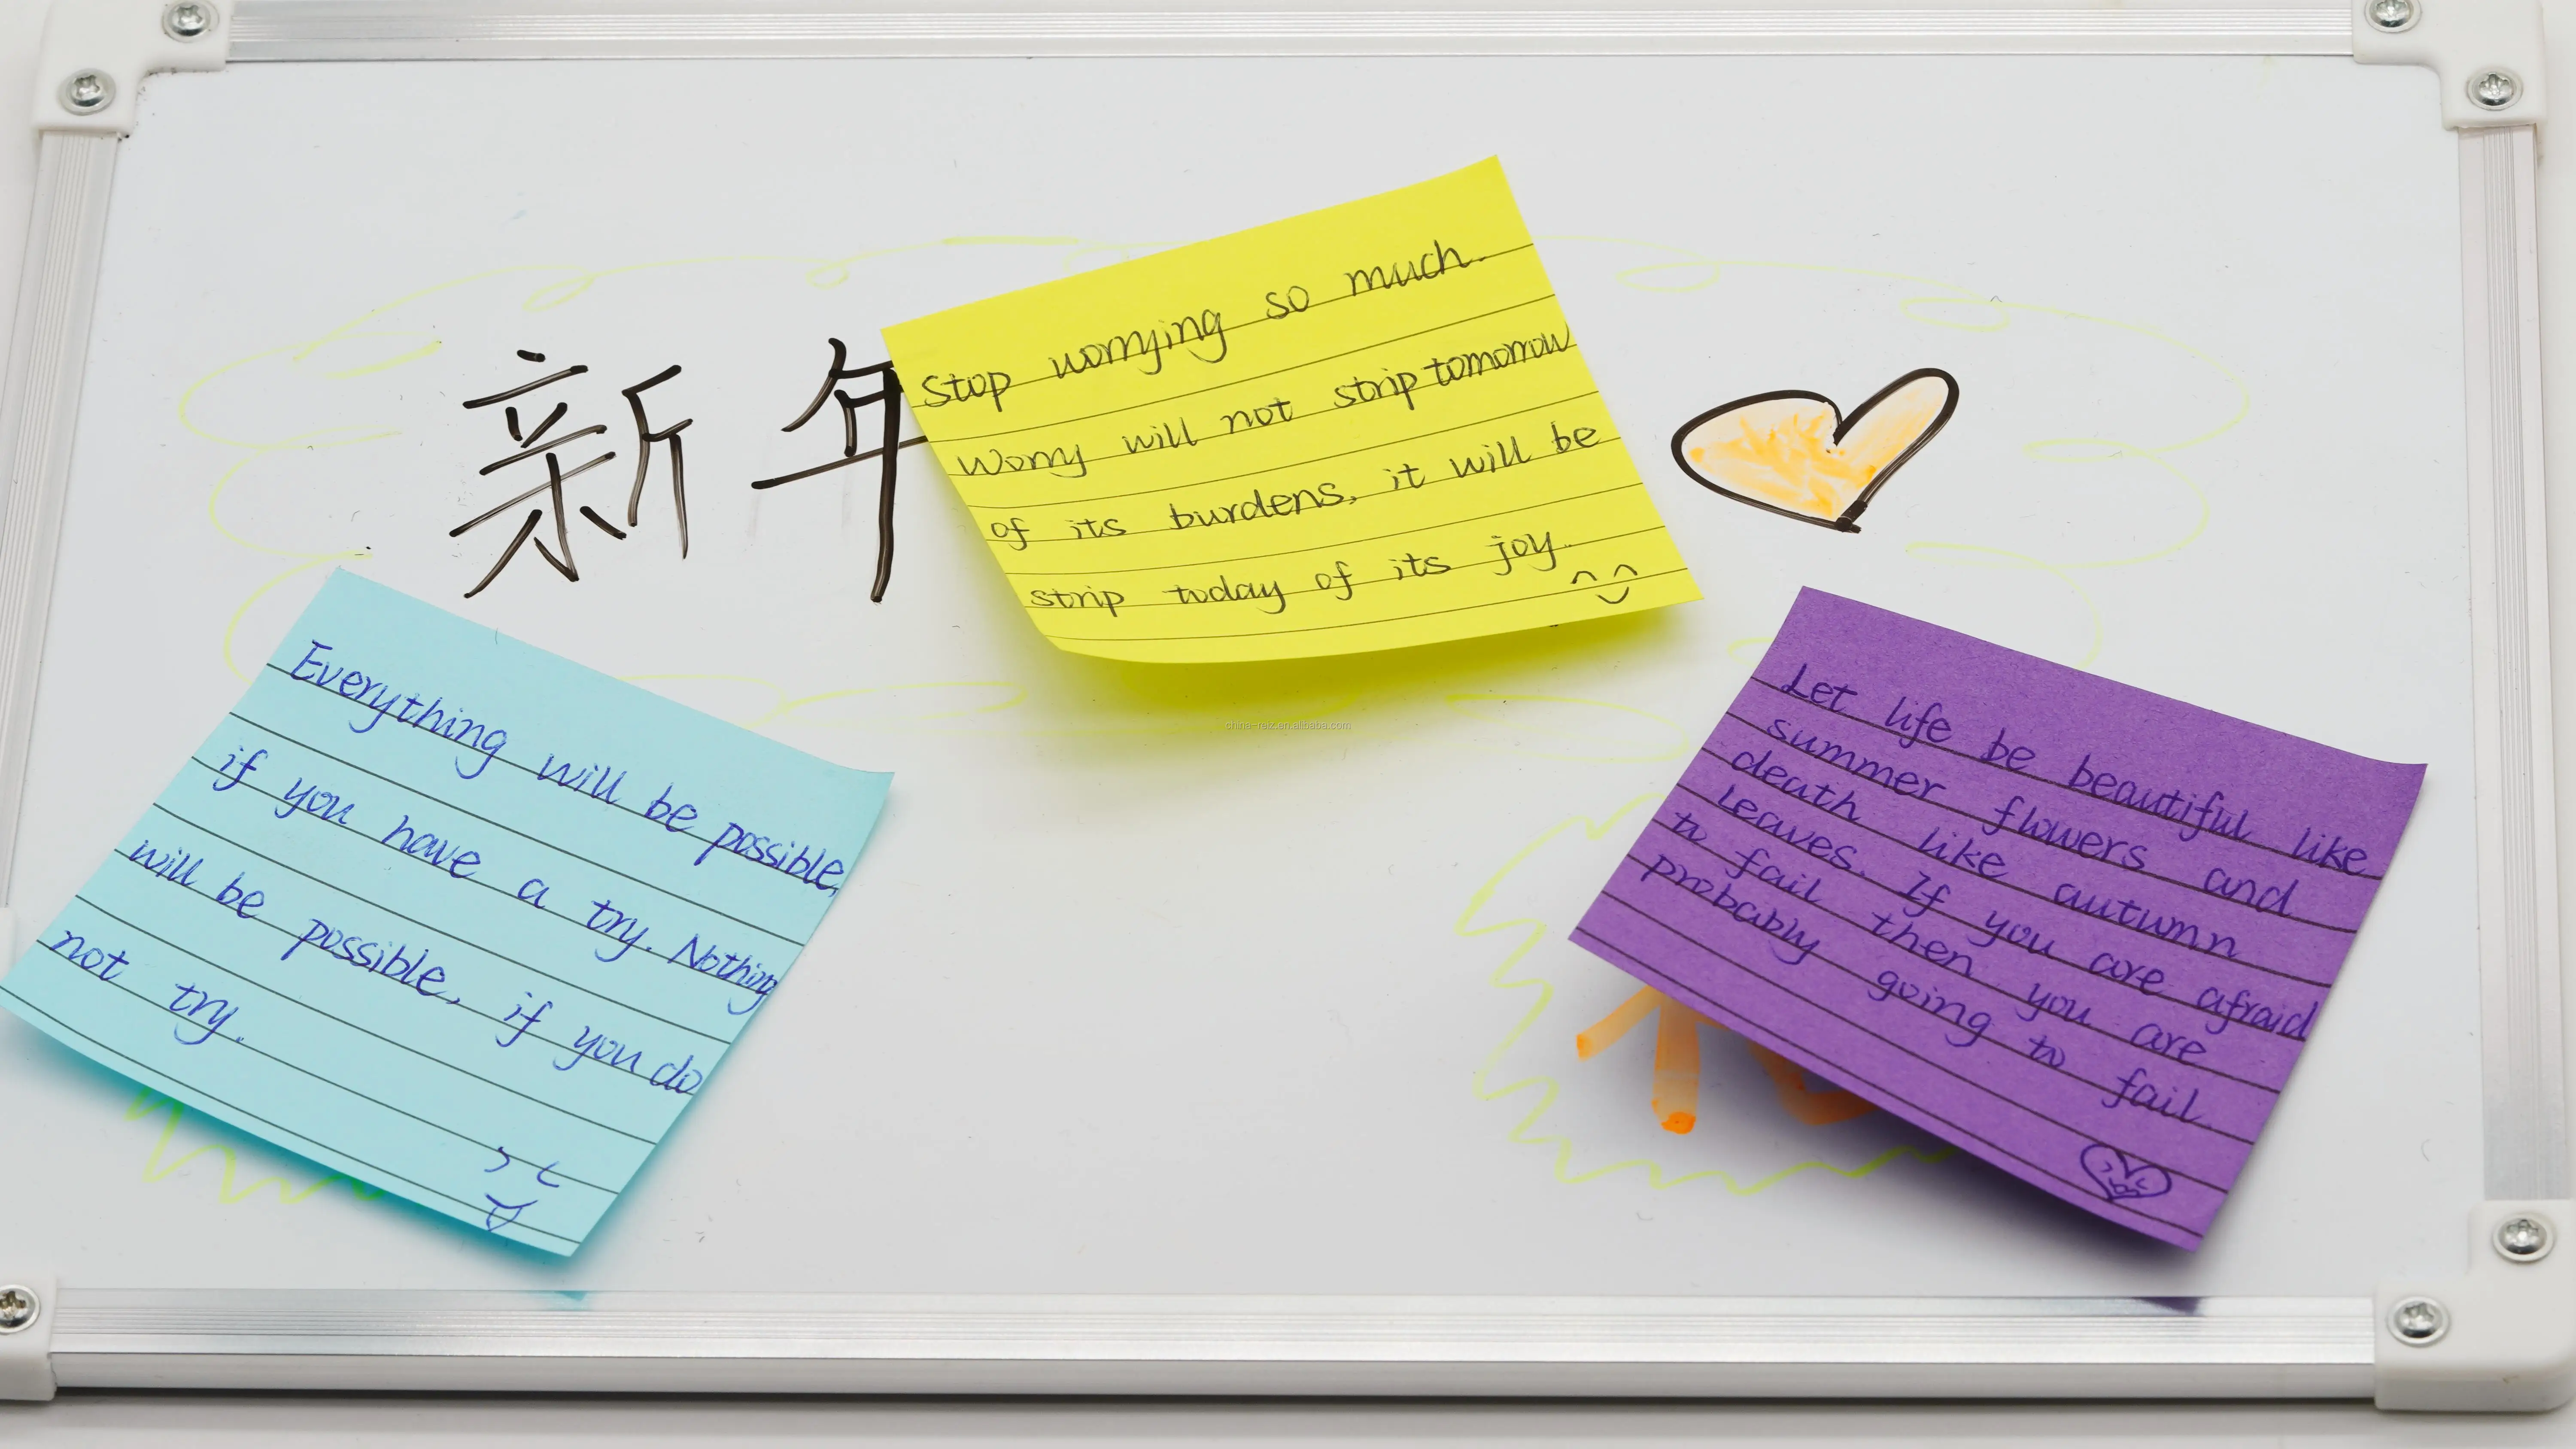 新年
Stop worrying so much.
Worry will not strip tomorrow
of its burdens, it will be
strip today of its joy.
Everything will be possible,
if you have a try. Nothing
will be possible, if you do
not try.
Let life be beautiful like
summer flowers and
death like autumn
leaves. If you are afraid
to fail then you are
probably going to fail.
china-reiz.en.alibaba.com